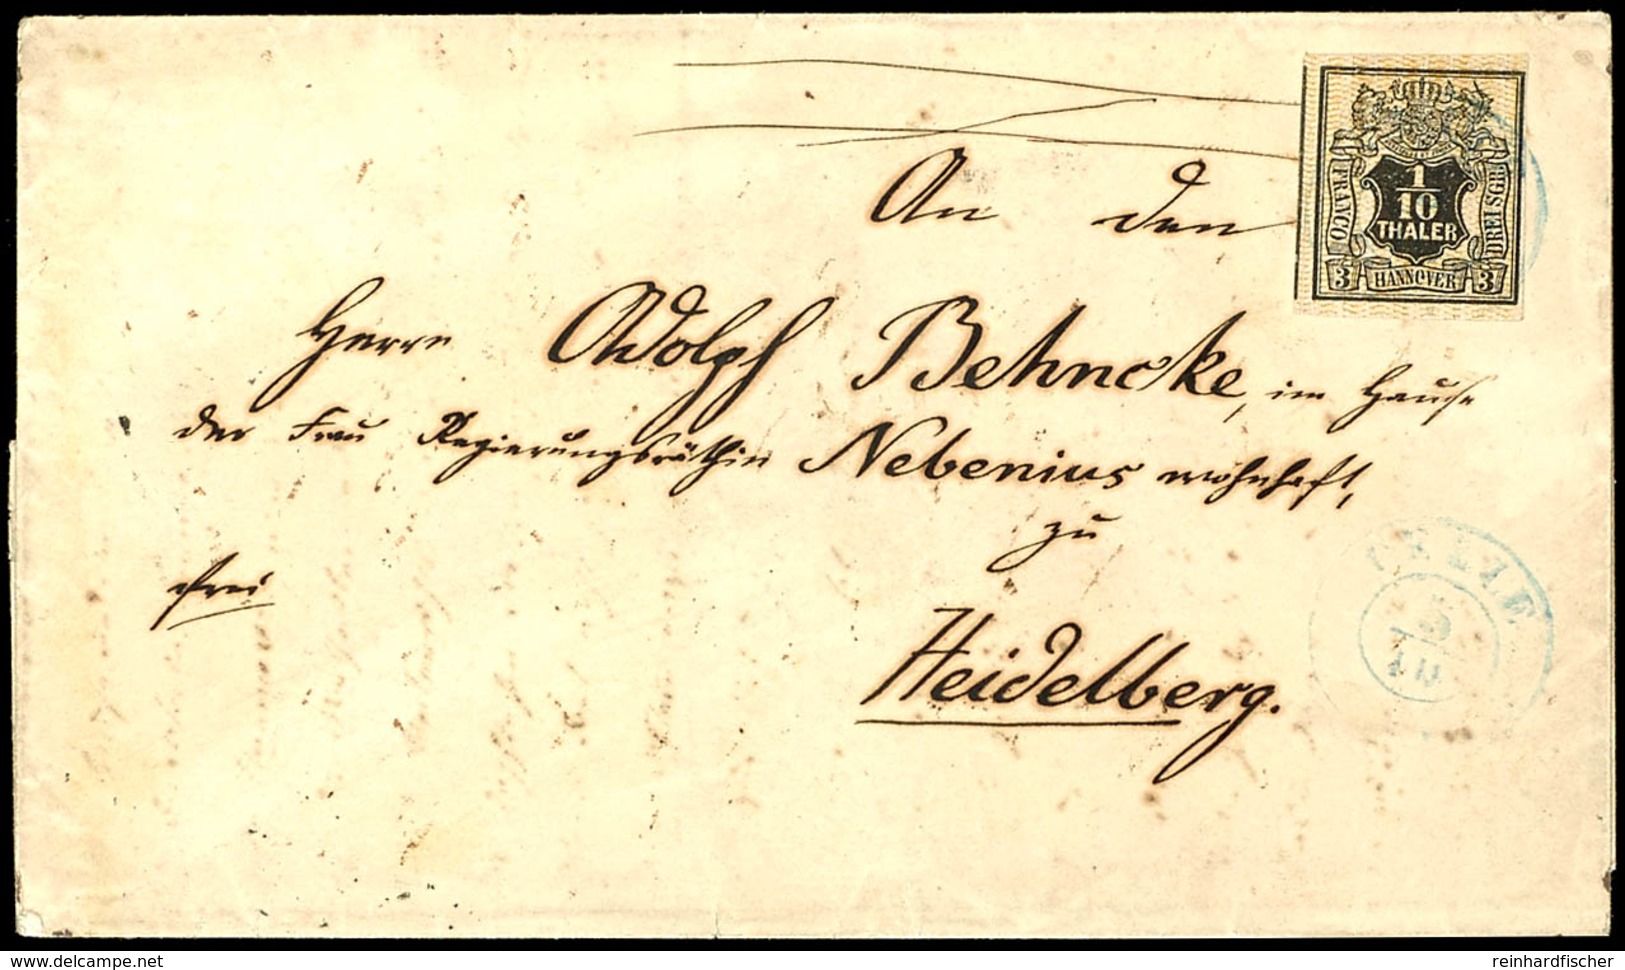 An den
Herrn Adolph Behncke, im Hause
der Frau Regierungsräthin Nebenius wohnhaft,
zu
frei
Heidelberg.
FRANCO
1/10
THALER
DREI SGR
3 HANNOVER 3
CELLE
5
www.delcampe.net
reinhardfischer